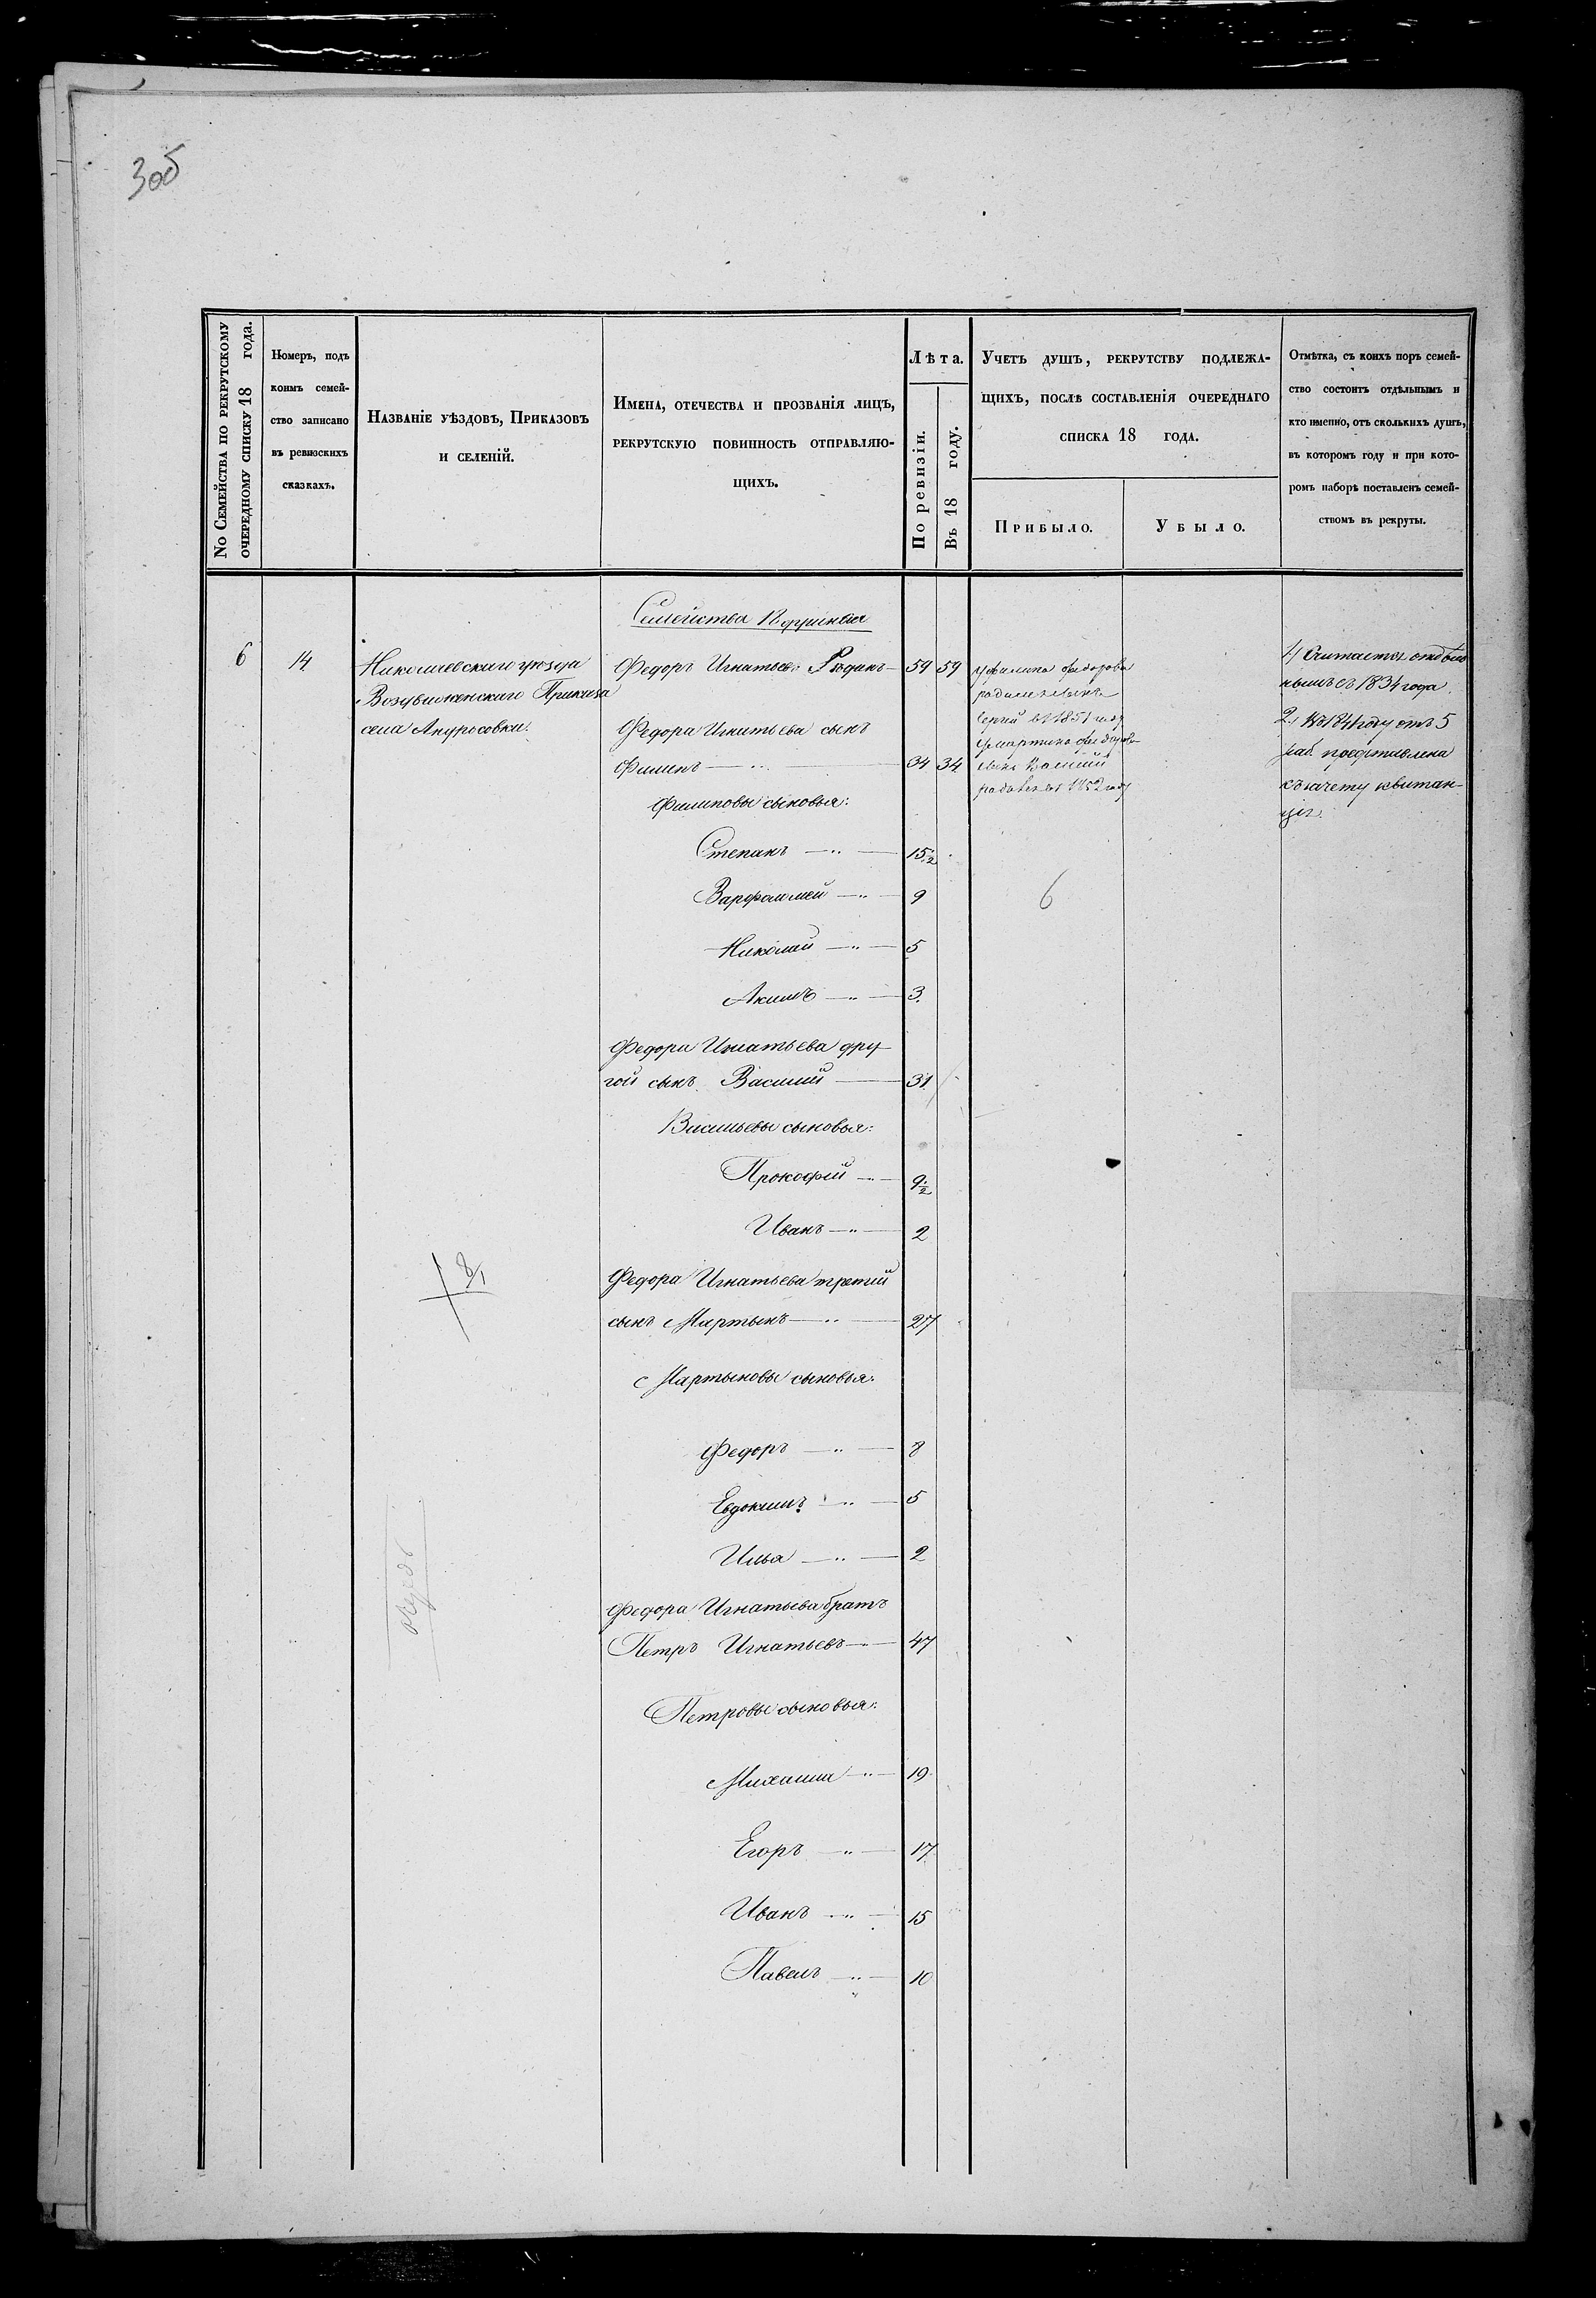 306
№ Семейства по рекрутскому
очередному списку 18 года.
Номеръ, подъ
коимъ семей-
ство записано
въ ревизскихъ
сказкахъ.
Названіе уѣздовъ, Приказовъ
и селеній.
Имена, отечества и прозванія лицъ,
рекрутскую повинность отправляю-
щихъ.
Лѣта.
По ревизіи.
Въ 18 году.
Учетъ душъ, рекрутству подлежа-
щихъ, послѣ составленія очереднаго
списка 18 года.
Прибыло.
Убыло.
Отмѣтка, съ коихъ поръ семей-
ство состоитъ отдѣльнымъ и
кто именно, отъ сколькихъ душъ,
въ которомъ году и при кото-
ромъ наборѣ поставленъ семей-
ствомъ въ рекруты.
Семейства
6
14
Николаевскаго уѣзда
Воздвиженскаго Приказа
села Андросовки.
Федоръ Игнатьевъ Рядинъ 59 59
Федора Игнатьева сынъ
Филипъ 34 34
Филиповы сыновья:
Степанъ 15½
Варфаломей 9
Николай 5
Акимъ 3.
Федора Игнатьева дру-
гой сынъ Василий 31
Васильевы сыновья:
Прокофий 9½
Иванъ 2
Федора Игнатьева третий
сынъ Мартынъ 27
Мартыновы сыновья:
Федоръ 8
Евдокимъ 5
Илья 2
Федора Игнатьева братъ
Петръ Игнатьевъ 47
Петровы сыновья:
Михаила 19
Егоръ 17
Иванъ 15
Павелъ 10
у Филипа Федорова
родился сынъ
Сергий въ 1851 году
у Мартина Федорова
сынъ Василий
родился въ 1852 году
6
1) Считается отдѣль
нымъ съ 1834 года.
2) Въ 1841 году отъ 5
раб. представлена
къ зачету квитан-
ція.
8/1